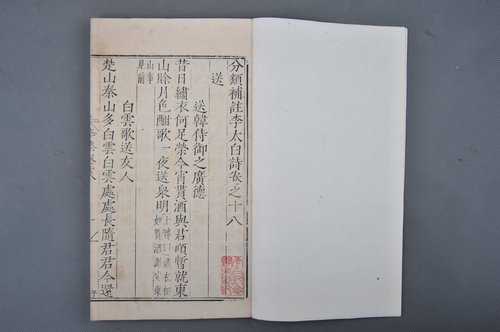 分類補註李太白詩卷之十八
送
送韓侍御之廣德
昔日繡衣何足榮今宵貰酒與君傾暫就東
山賖月色酣歌一夜送泉明
白雲歌送友人
楚山秦山多白雲白雲處處長隨君君今還